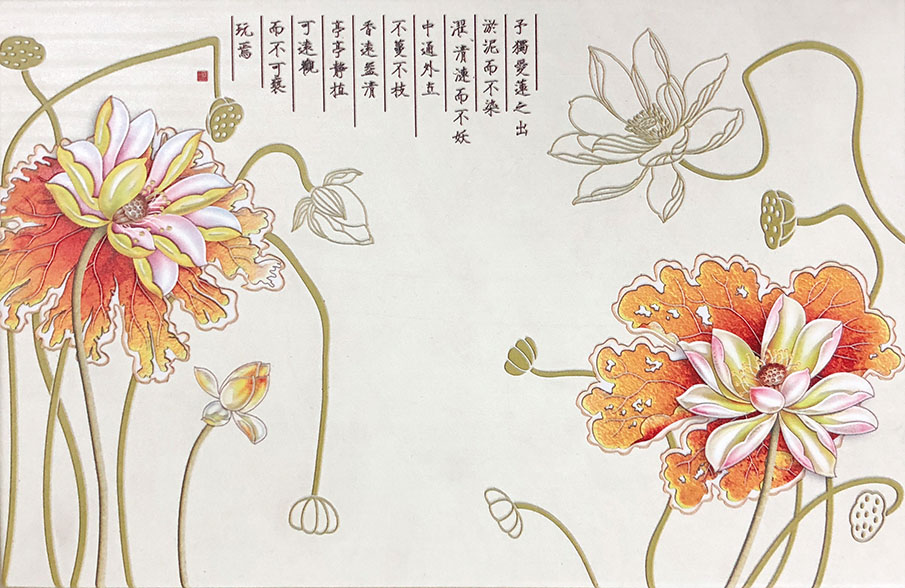 予獨愛蓮之出
淤泥而不染
濯清漣而不妖
中通外直
不蔓不枝
香遠益清
亭亭靜植
可遠觀
而不可褻
玩焉